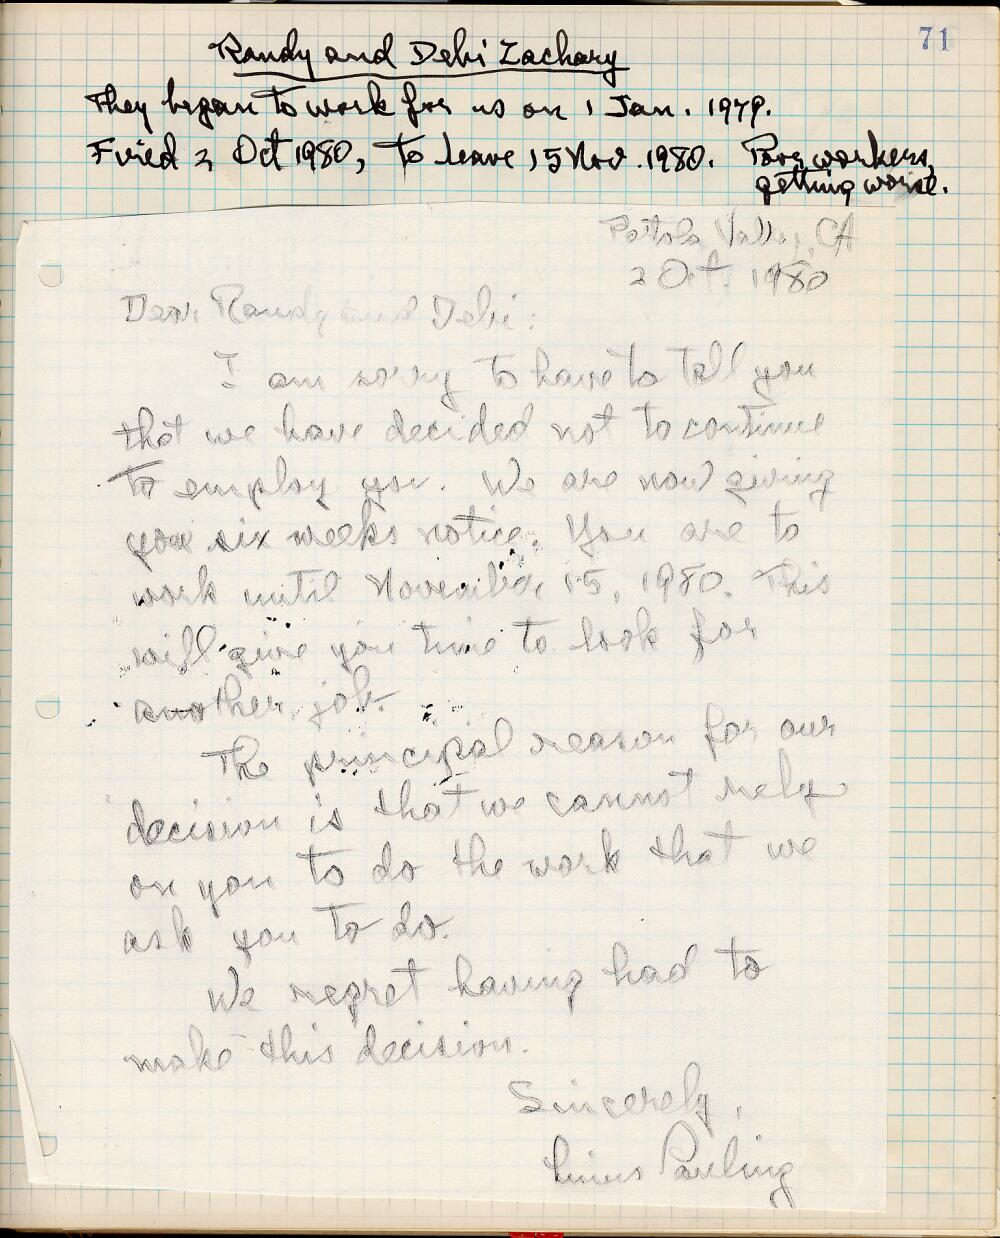 71
Randy and Debi Zachary
They began to work for us on 1 Jan. 1979.
Fired 2 Oct 1980, to leave 15 Nov. 1980. Poor workers,
getting worse.
Portola Valley, CA
2 Oct. 1980
Dear Randy and Debi:
I am sorry to have to tell you
that we have decided not to continue
to employ you. We are now giving
you six weeks notice. You are to
work until November 15, 1980. This
will give you time to look for
another job.
The principal reason for our
decision is that we cannot rely
on you to do the work that we
ask you to do.
We regret having had to
make this decision.
Sincerely,
Linus Pauling